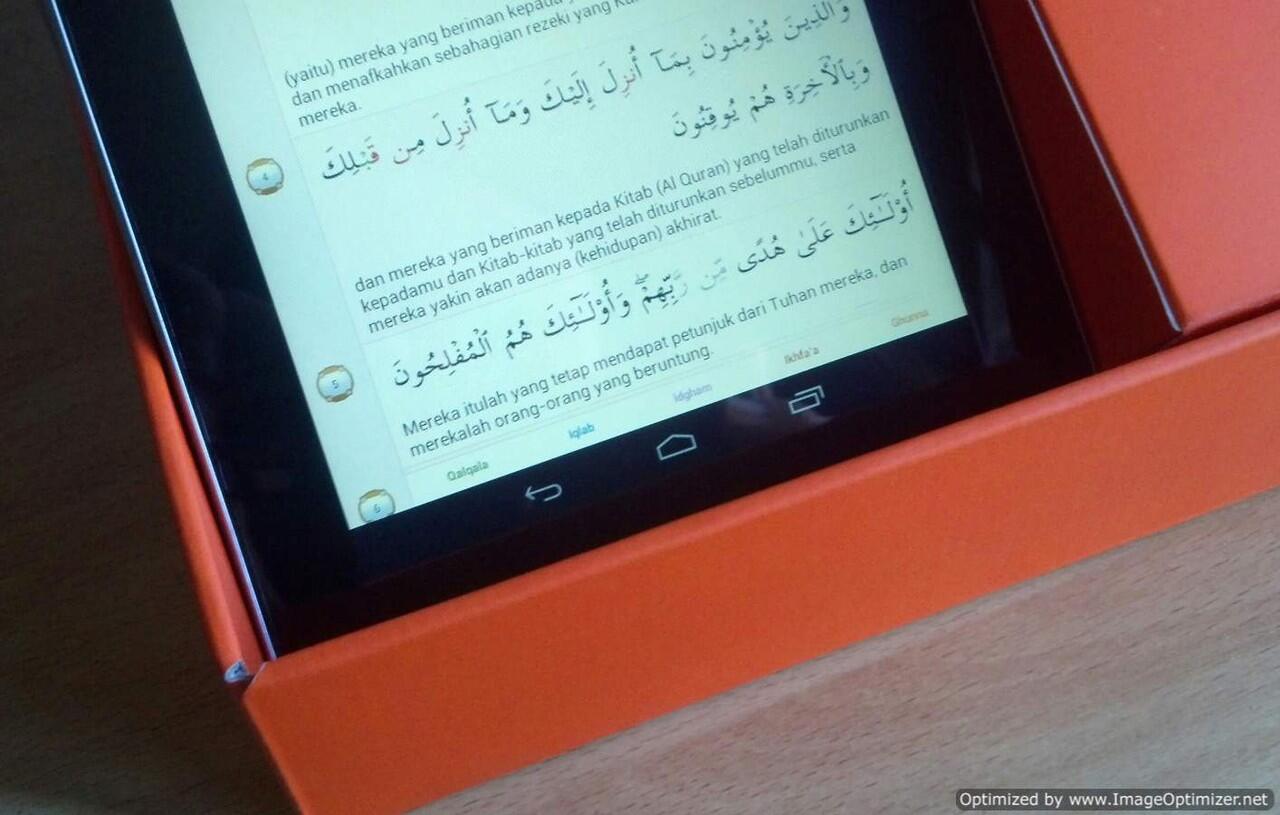 (yaitu) mereka yang beriman kepada
dan menafkahkan sebahagian rezeki yang
mereka.
4
وَالَّذِينَ يُؤْمِنُونَ بِمَآ أُنزِلَ إِلَيْكَ وَمَآ أُنزِلَ مِن قَبْلِكَ
وَبِٱلْأَخِرَةِ هُمْ يُوقِنُونَ
dan mereka yang beriman kepada Kitab (Al Quran) yang telah diturunkan
kepadamu dan Kitab-kitab yang telah diturunkan sebelummu, serta
mereka yakin akan adanya (kehidupan) akhirat.
5
أُوْلَـٰٓئِكَ عَلَىٰ هُدًى مِّن رَّبِّهِمْ ۖ وَأُوْلَـٰٓئِكَ هُمُ ٱلْمُفْلِحُونَ
Mereka itulah yang tetap mendapat petunjuk dari Tuhan mereka, dan
merekalah orang-orang yang beruntung.
6
Qalqala Iqlab Idgham Ikhfa'a Ghunna
Optimized by www.ImageOptimizer.net